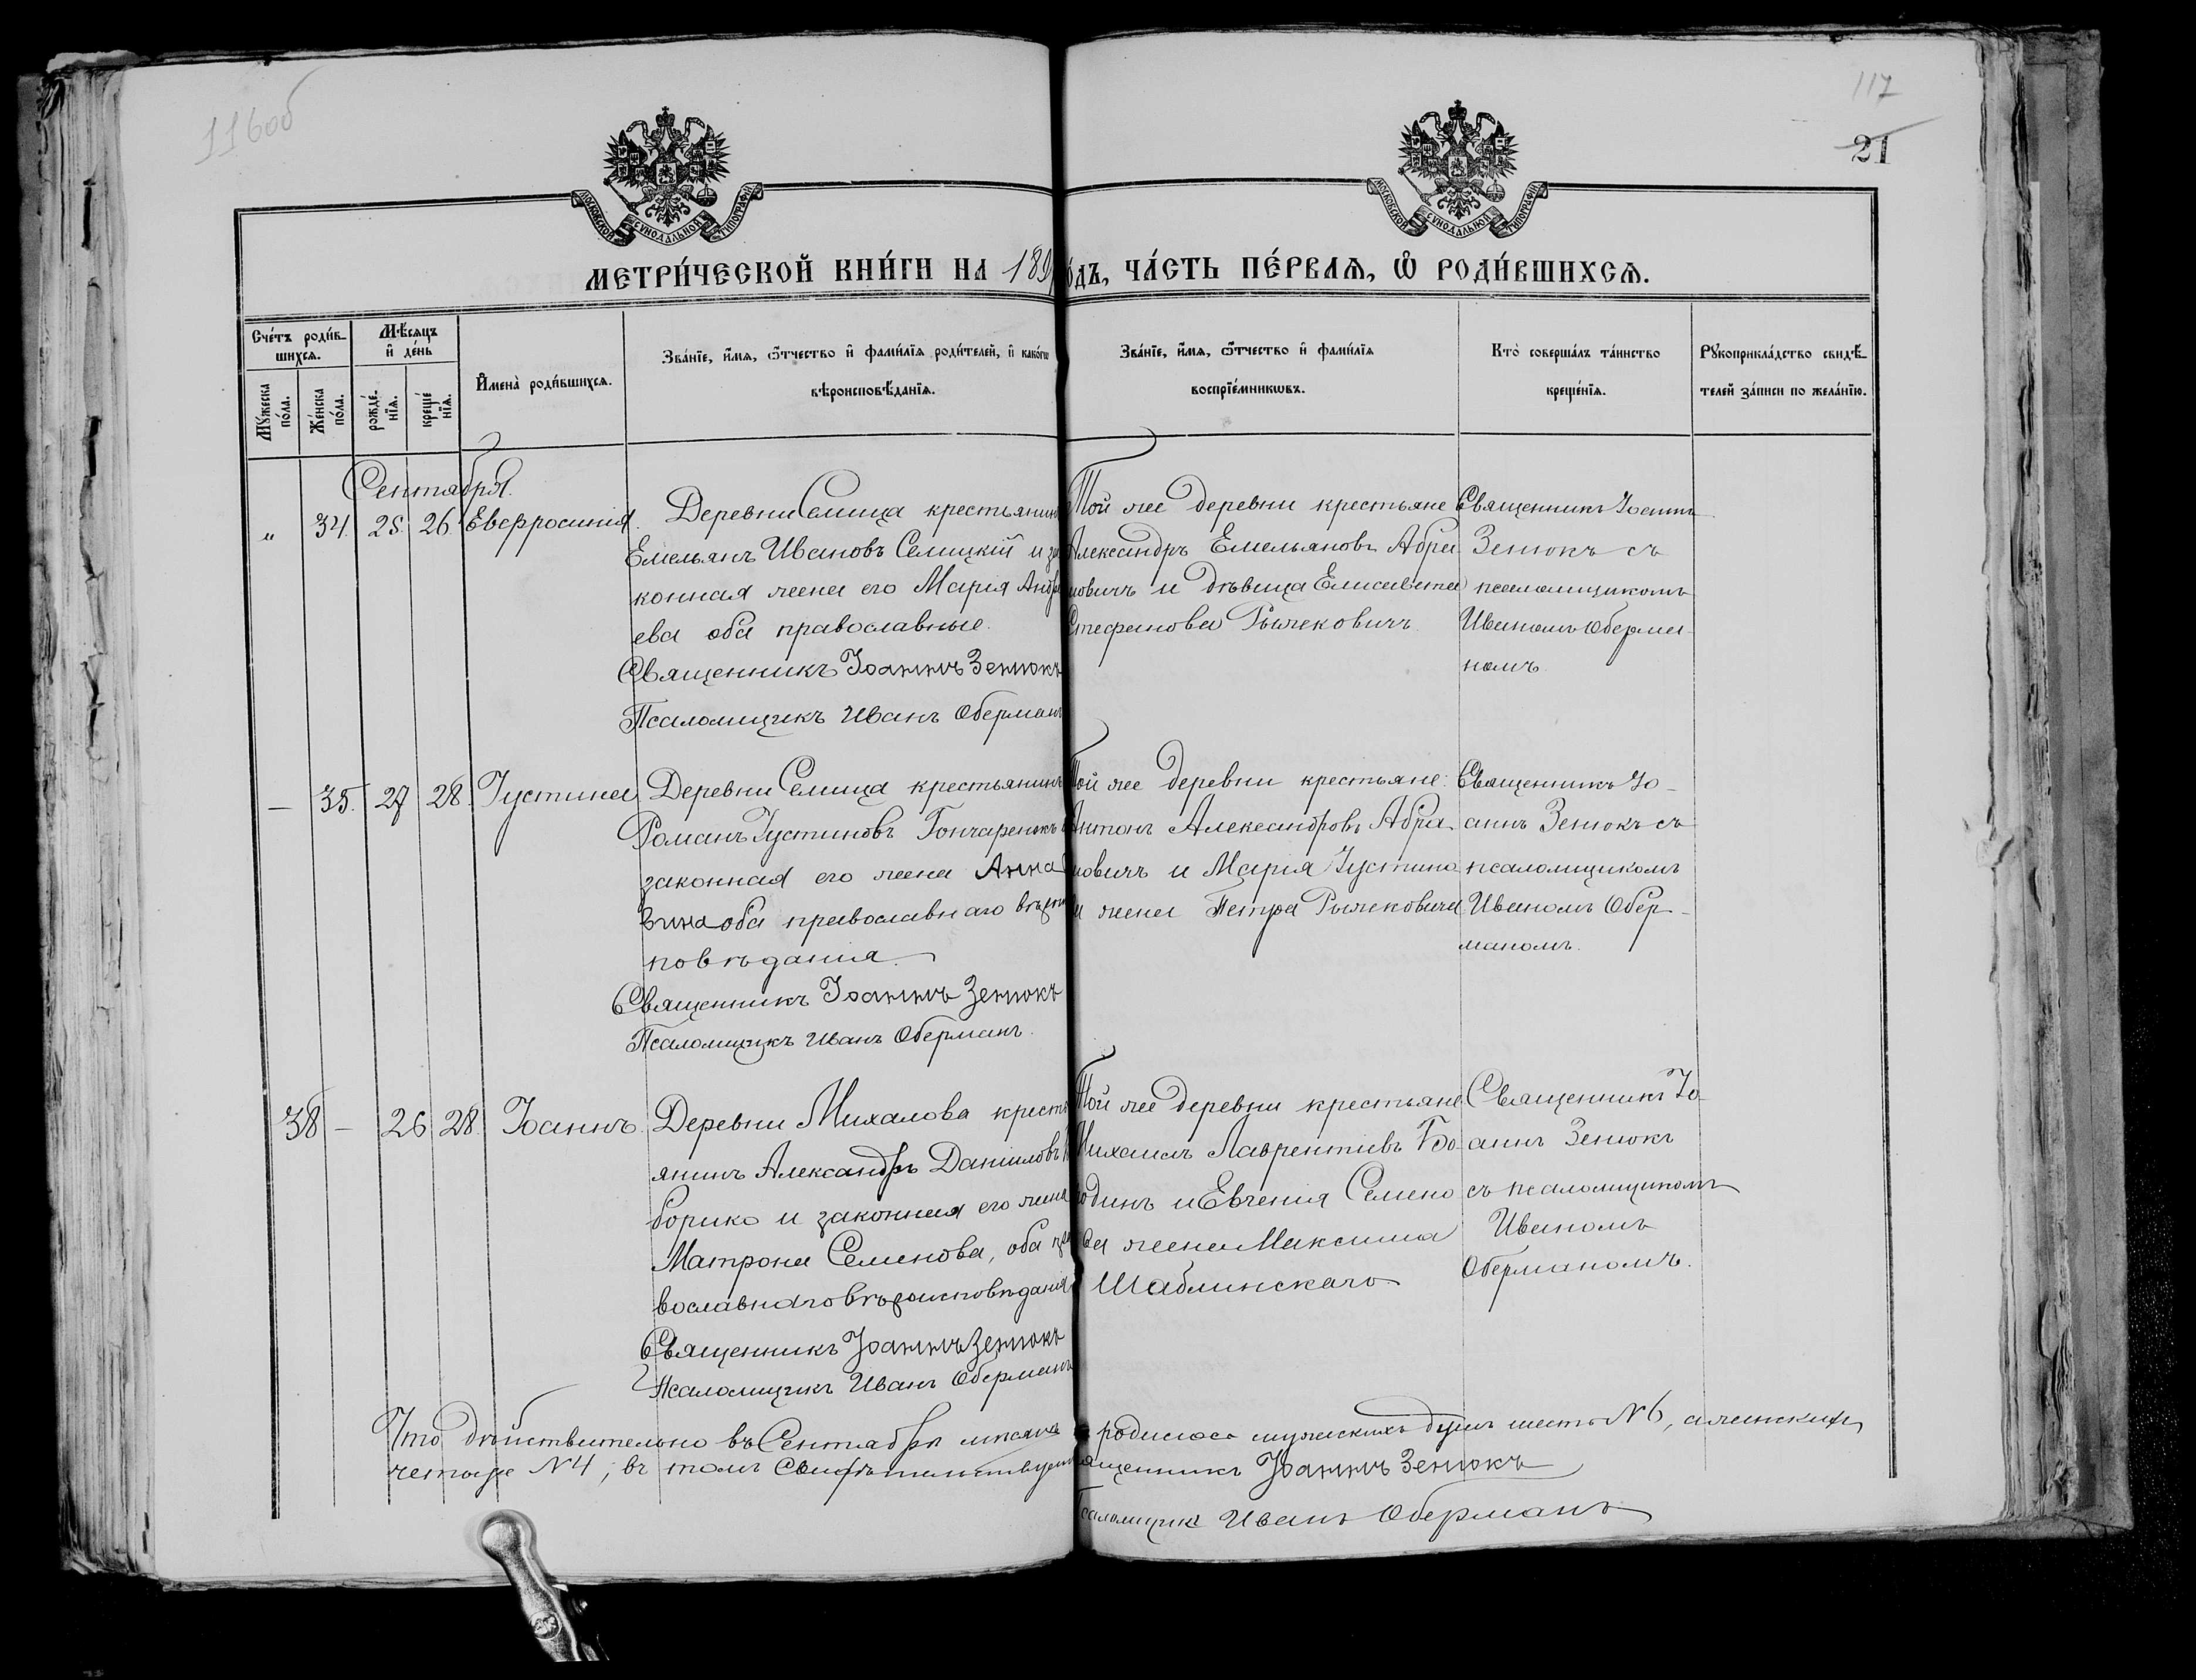 116об
117
21
МОСКОВСКОЙ СѴНОДАЛЬНОЙ ТИПОГРАФІИ
МОСКОВСКОЙ СѴНОДАЛЬНОЙ ТИПОГРАФІИ
МЕТРИ́ЧЕСКОЙ КНИ́ГИ НА 189
о́дъ, ЧА́СТЬ ПЕ́РВАЯ, Ѽ РОДИ́ВШИХСЯ.
Сче́тъ роди́в-
шихся.
Мѣ́сяцъ
и҆ де́нь
Мꙋ́жеска
по́ла.
Же́нска
по́ла.
рожде́-
нїя.
креще́-
нїя.
И҆мена̀ роди́вшихся.
Зва́нїе, и҆́мя, ѻ҆́тчество и҆ фами́лїя роди́телей, и҆ како́гѡ
вѣроисповѣ́данїя.
Зва́нїе, и҆́мя, ѻ҆́тчество и҆ фами́лїя
воспрїе́мникѡвъ.
Кто̀ соверша́лъ та́инство
креще́нїя.
Рꙋкоприкла́дство свидѣ́-
телей за́писи по жела́нїю.
Сентября.
„ 34. 25. 26. Евфросинія.
Деревни Селища крестьянин
Емельянъ Ивановъ Селицкій и за
конная жена его Марія Андре
ева оба православные.
Священникъ Іоаннъ Зенюкъ
Псаломщикъ Иванъ Оберманъ
Той же деревни крестьяне
Александръ Емельяновъ Абра
мовичъ и дѣвица Елисавета
Стефанова Рычковичъ
Священникъ Іоаннъ
Зенюкъ съ
псаломщикомъ
Иваномъ Оберма-
номъ
— 35. 27 28. Іустина
Деревни Селища крестьянинъ
Романъ Іустиновъ Гончаренокъ
законная его жена Анна
вина оба православнаго
повѣданія.
Священникъ Іоаннъ Зенюкъ
Псаломщикъ Иванъ Оберманъ.
Той же деревни крестьяне:
Антонъ Александровъ Абра-
мовичъ и Марія Іустино
жена Петра
Священникъ Іо-
аннъ Зенюкъ съ
псаломщикомъ
Иваномъ Обер-
маномъ.
38 — 26 28. Іоаннъ.
Деревни Михалова кресть
янинъ Александръ Даниловъ
борико и законная его жена
Матрона Семенова, оба пра
вославнаго вѣроисповѣданія
Священникъ Іоаннъ Зенюкъ
Псаломщикъ Иванъ Оберманъ
Той же деревни крестьяне
Михаилъ Лаврентіевъ Бо-
родинъ и Евгенія Семено
ва жена Максима
Шаблинскаго
Священникъ Іо-
аннъ Зенюкъ
съ псаломщикомъ
Иваномъ
Оберманомъ.
Что дѣйствительно въ Сентябрѣ мѣсяцѣ родилось мужскихъ душъ шесть №6, а женскихъ
четыре №4, въ томъ свидѣтельствуемъ
ященникъ Іоаннъ Зенюкъ
Псаломщикъ Иванъ Оберманъ